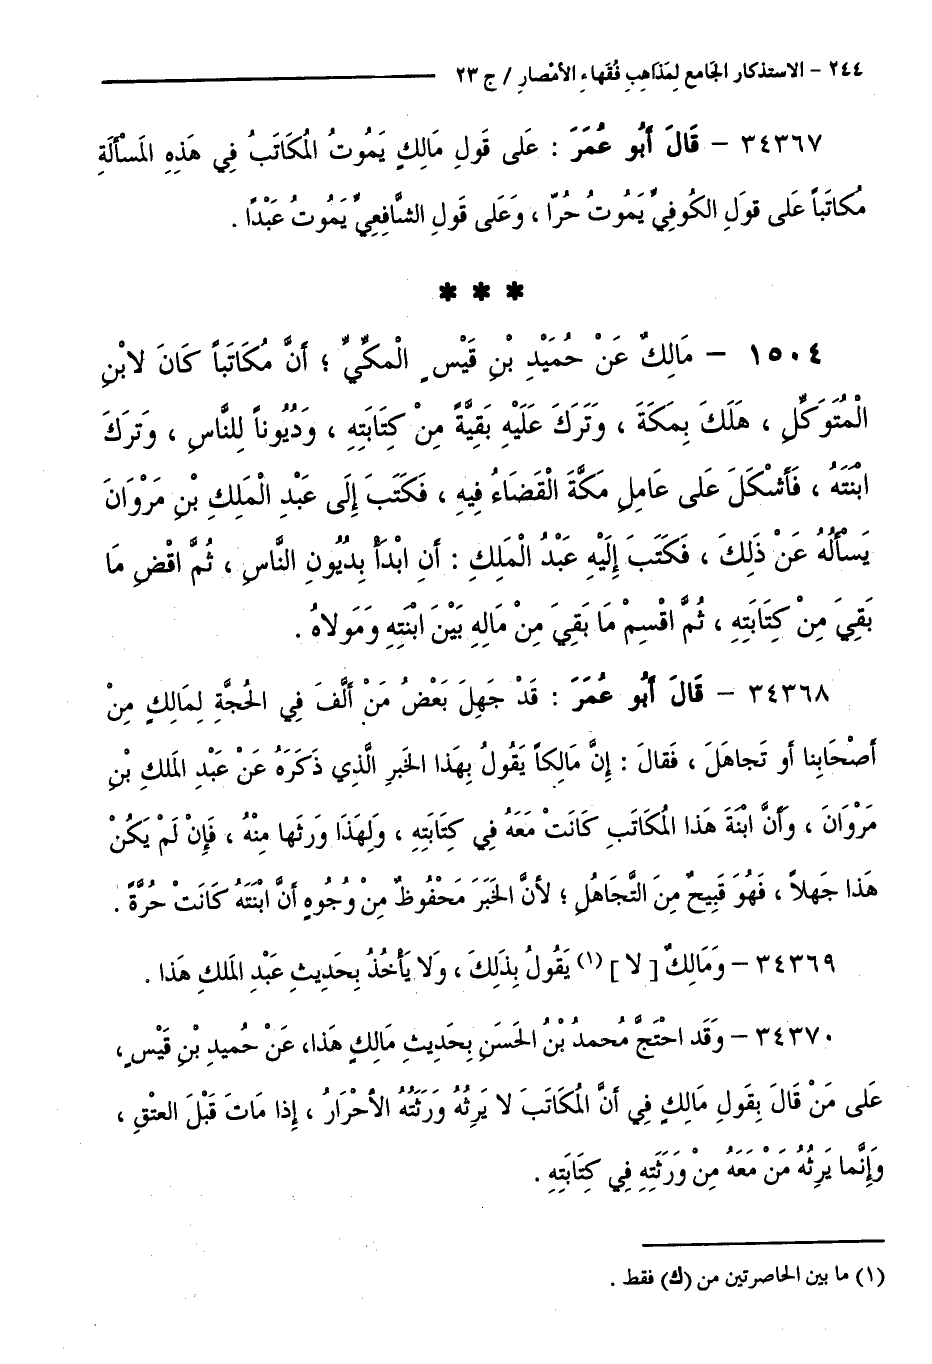 ٢٤٤ - الاستذكار الجامع لِمَذاهِبِ فُقَهاءِ الأَمْصارِ / ج ٢٣
٣٤٣٦٧ - قَالَ أَبُو عُمَرَ : عَلى قَولِ مَالِكٍ يَمُوتُ المُكَاتَبُ فِي هَذِهِ المَسْأَلَةِ
مُكاتَباً عَلى قَولِ الكُوفِيِّ يَمُوتُ حُرّا ، وَعَلى قَولِ الشَّافعِيِّ يَمُوتُ عَبْدًا .
* * *
١٥٠٤ - مَالِكٌ عَنْ حُمَيْدِ بْنِ قَيْسٍ الْمكِّيِّ ؛ أَنَّ مُكَاتَباً كَانَ لابْنِ
الْمُتَوَكِّلِ ، هَلَكَ بِمَكَةَ ، وَتَرَكَ عَلَيْهِ بَقِيَّةً مِنْ كِتَابَتِهِ ، وَدُيُوناً لِلنَّاسِ ، وَتَرَكَ
ابْنَتَهُ ، فَأَشْكَلَ عَلى عَامِلِ مَكَّةَ الْقَضَاءُ فِيهِ ، فَكَتَبَ إِلَى عَبْدِ الْمَلِكِ بْنِ مَرْوَانَ
يَسْأَلُهُ عَنْ ذَلِكَ ، فَكَتَبَ إِلَيْهِ عَبْدُ الْمَلِكِ : أَنِ ابْدَأْ بِدُيُونِ النَّاسِ ، ثُمَّ اقْضِ مَا
بَقِيَ مِنْ كِتَابَتِهِ ، ثُمَّ اقْسِمْ مَا بَقِيَ مِنْ مَالِهِ بَيْنَ ابْنَتِهِ وَمَولاهُ .
٣٤٣٦٨ - قَالَ أَبُو عُمَرَ : قَدْ جَهِلَ بَعْضُ مَنْ أَلَّفَ فِي الحُجَّةِ لِمَالِكٍ مِنْ
أَصْحَابِنا أو تَجاهَلَ ، فَقالَ : إِنَّ مَالِكاً يَقُولُ بِهَذا الخَبرِ الَّذِي ذَكَرَهُ عَنْ عَبْدِ المَلكِ بْنِ
مَرْوَانَ ، وَأَنَّ ابْنَةَ هَذا المُكَاتَبِ كَانَتْ مَعَهُ فِي كِتَابَتِهِ ، وَلِهَذَا وَرثَها مِنْهُ ، فَإِنْ لَمْ يَكُنْ
هَذا جَهلاً ، فَهُوَ قَبِيحٌ مِنَ التَّجاهُلِ ؛ لأَنَّ الخَبَرَ مَحْفُوظٌ مِنْ وُجُوهٍ أَنَّ ابْنَتَهُ كَانَتْ حُرَّةً .
٣٤٣٦٩ - وَمَالِكٌ [ لا ] (١) يَقُولُ بِذَلِكَ ، وَلا يَأْخُذُ بِحَديثِ عَبْدِ المَلكِ هَذا .
٣٤٣٧٠ - وَقَد احْتَجَّ مُحمدُ بْنُ الحَسَنِ بِحَديثِ مَالكٍ هَذا، عَنْ حُميدِ بْنِ قَيْسٍ ،
عَلى مَنْ قَالَ بِقَولِ مَالِكٍ فِي أَنَّ المُكَاتَبَ لا يَرِثُهُ وَرَثَتُهُ الأَحْرَارُ ، إذا مَاتَ قَبْلَ العتْقِ ،
وَإِنَّما يَرِثُهُ مَنْ مَعَهُ مِنْ وَرَثَتِهِ فِي كِتَابَتِهِ .
(١) ما بين الحاصرتين من (ك) فقط .